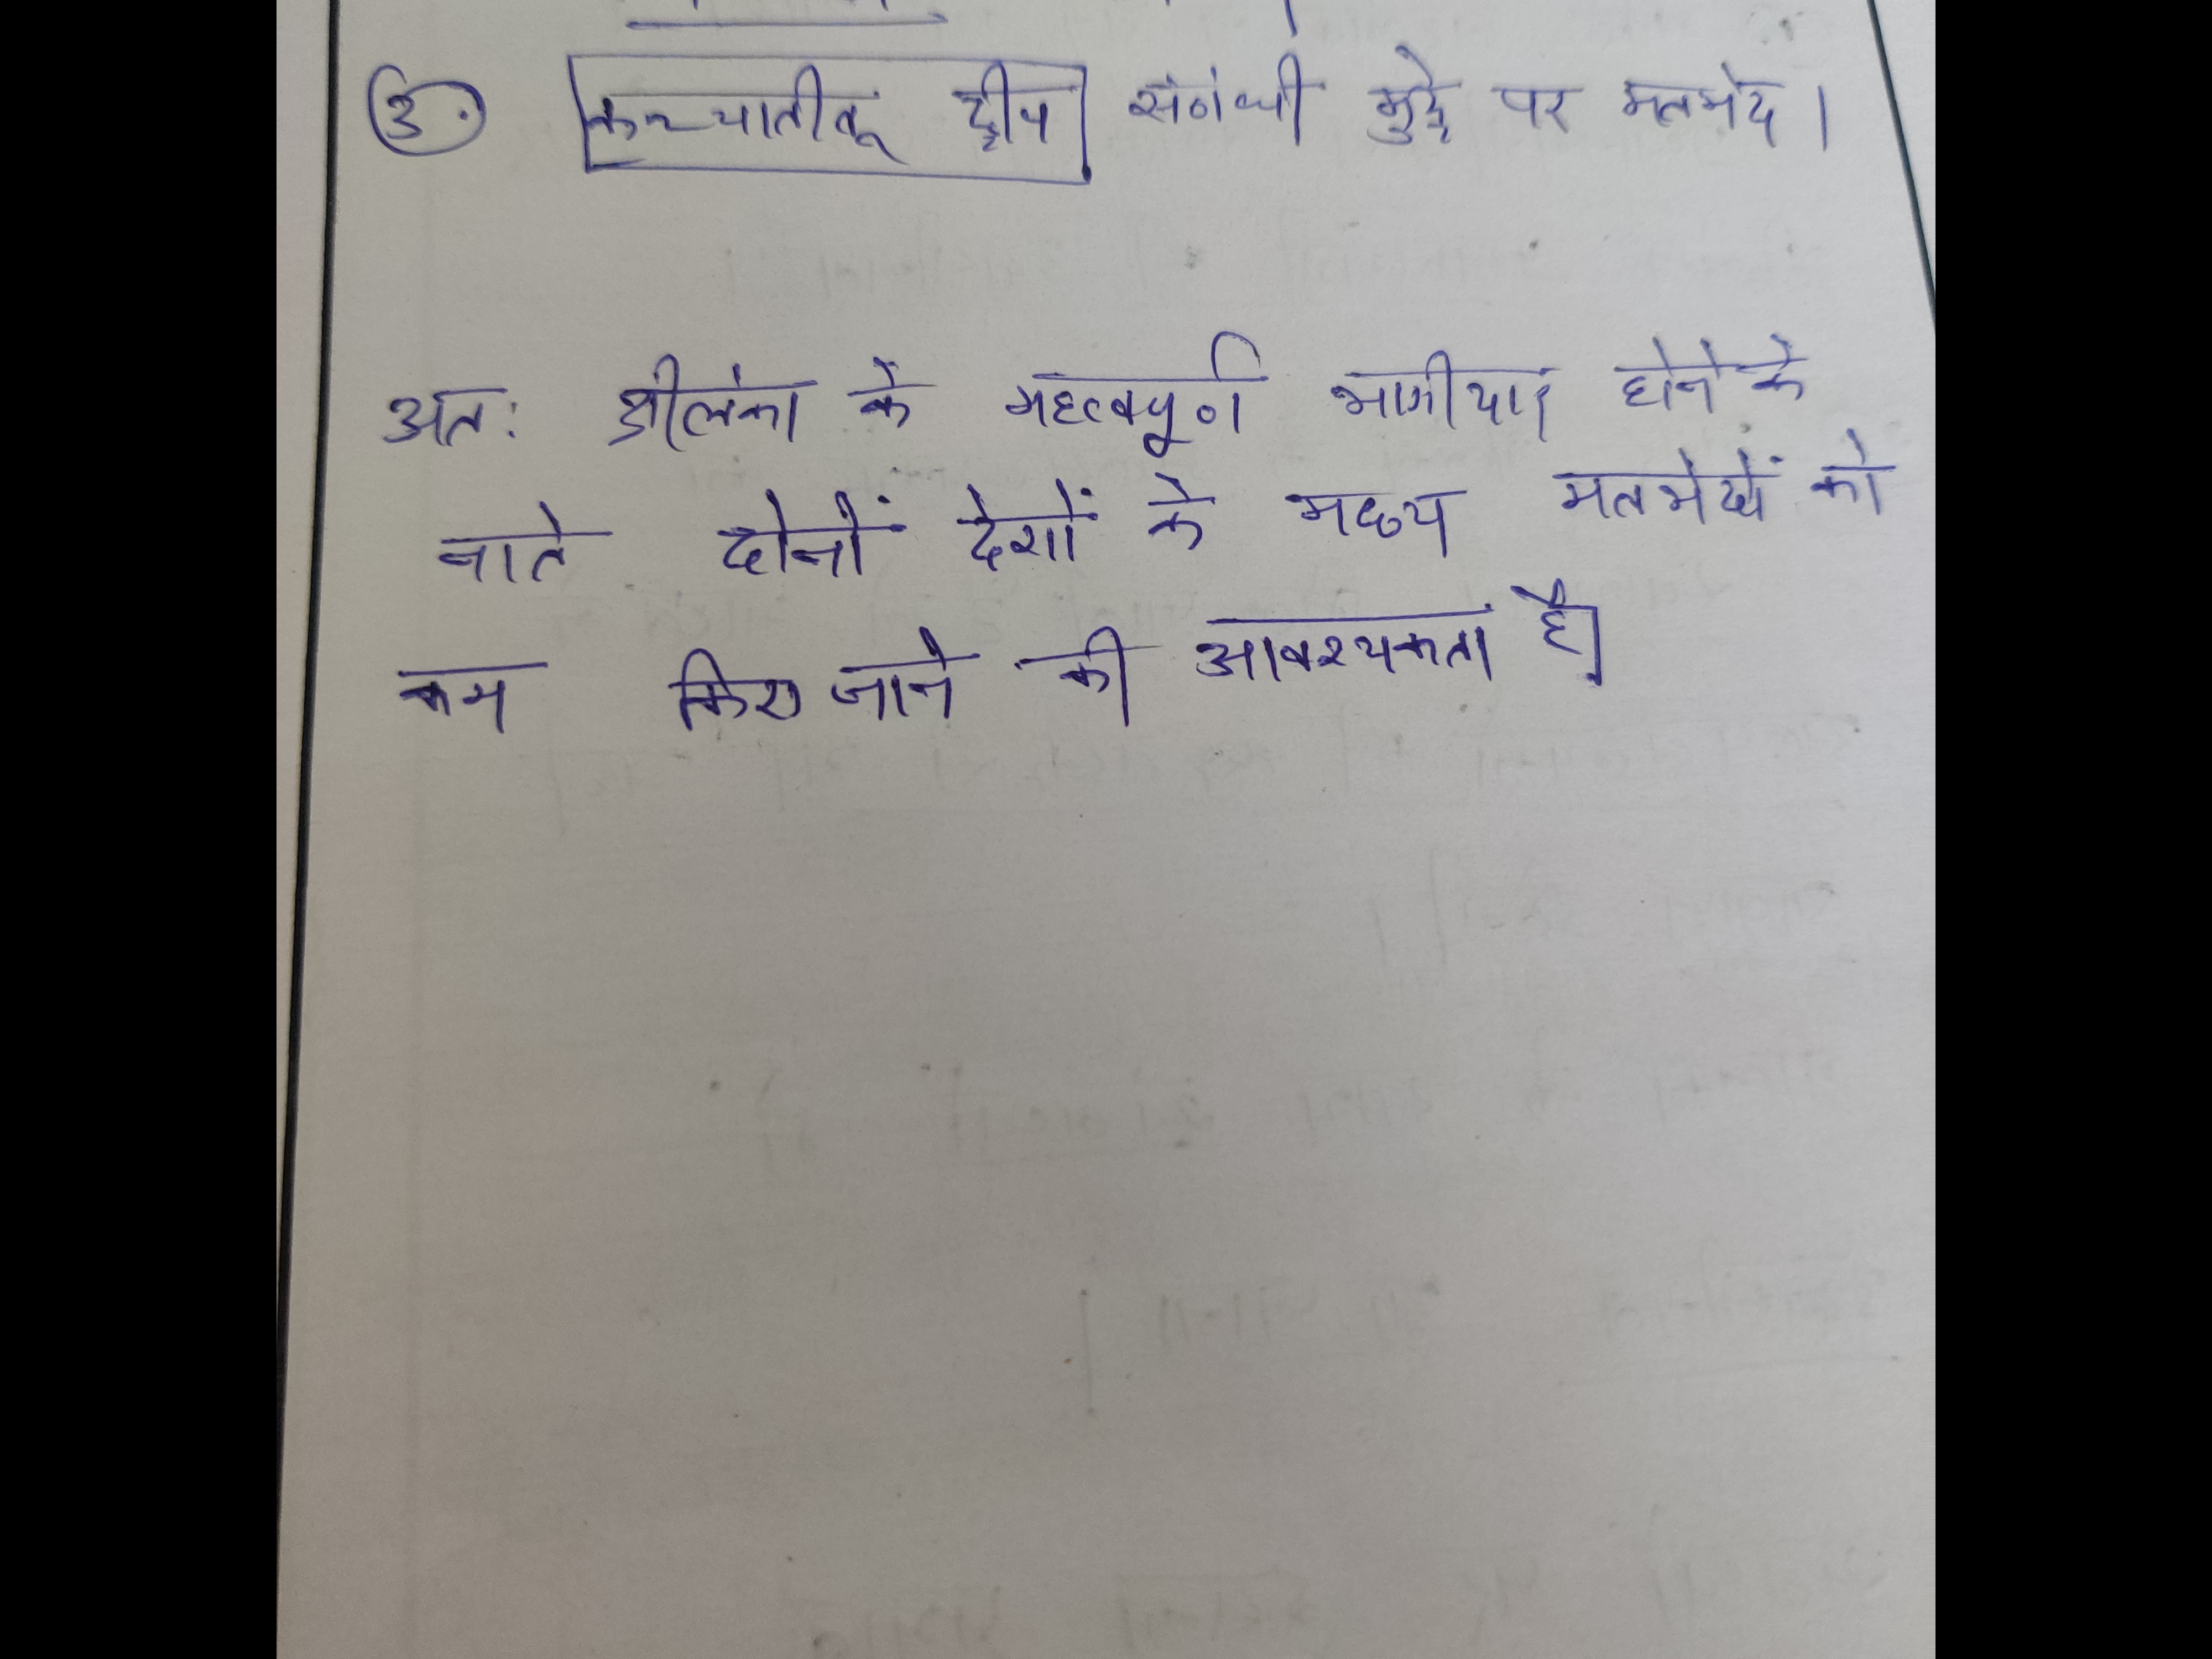 3. कच्चातीवू द्वीप संबंधी मुद्दे पर मतभेद।
अतः श्रीलंका के महत्वपूर्ण भागीदार होने के
नाते दोनों देशों के मध्य मतभेदों को
कम किए जाने की आवश्यकता है।